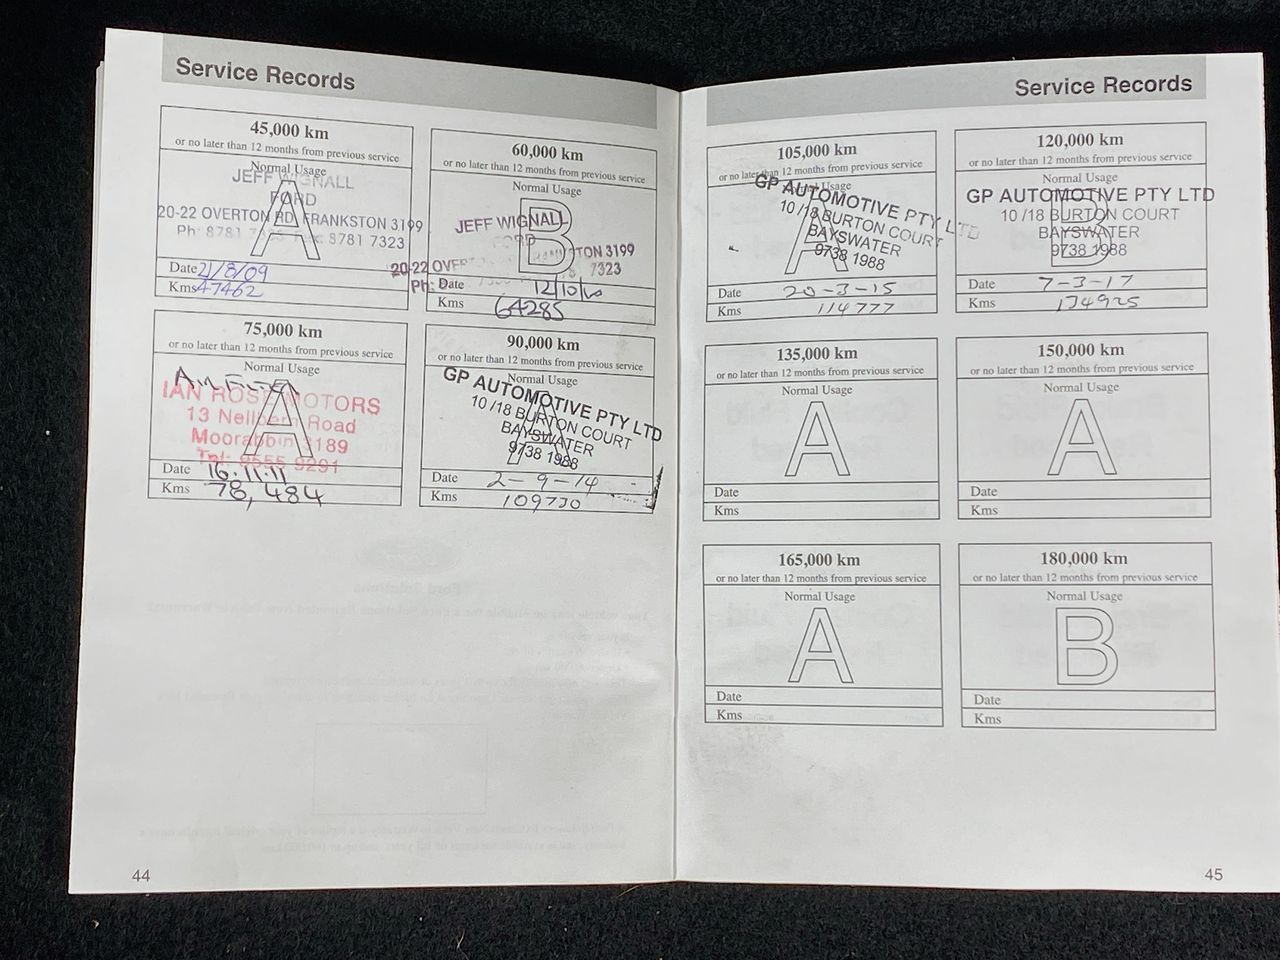 Service Records
45,000 km
or no later than 12 months from previous service
Normal Usage
A
JEFF WIGNALL
FORD
20-22 OVERTON RD, FRANKSTON 3199
Ph: 8781 Fax: 8781 7323
Date 21/8/09
Kms 47462
60,000 km
or no later than 12 months from previous service
Normal Usage
B
JEFF WIGNALL
FORD
20-22 3199
Ph: 7323
Date 12/10/10
Kms 64285
75,000 km
or no later than 12 months from previous service
Normal Usage
A
IAN ROSS MOTORS
13 Road
Moorabbin 3189
Tel: 8555 9291
Date 16.11.11
Kms 78,484
90,000 km
or no later than 12 months from previous service
Normal Usage
A
GP AUTOMOTIVE PTY LTD
10 /18 BURTON COURT
BAYSWATER
9738 1988
Date 2-9-14
Kms 109730
44
Service Records
105,000 km
or no later than 12 months from previous service
Normal Usage
A
GP AUTOMOTIVE PTY LTD
10 /18 BURTON COURT
BAYSWATER
9738 1988
Date 20-3-15
Kms 114777
120,000 km
or no later than 12 months from previous service
Normal Usage
B
GP AUTOMOTIVE PTY LTD
10 /18 BURTON COURT
BAYSWATER
9738 1988
Date 7-3-17
Kms 134925
135,000 km
or no later than 12 months from previous service
Normal Usage
A
Date
Kms
150,000 km
or no later than 12 months from previous service
Normal Usage
A
Date
Kms
165,000 km
or no later than 12 months from previous service
Normal Usage
A
Date
Kms
180,000 km
or no later than 12 months from previous service
Normal Usage
B
Date
Kms
45